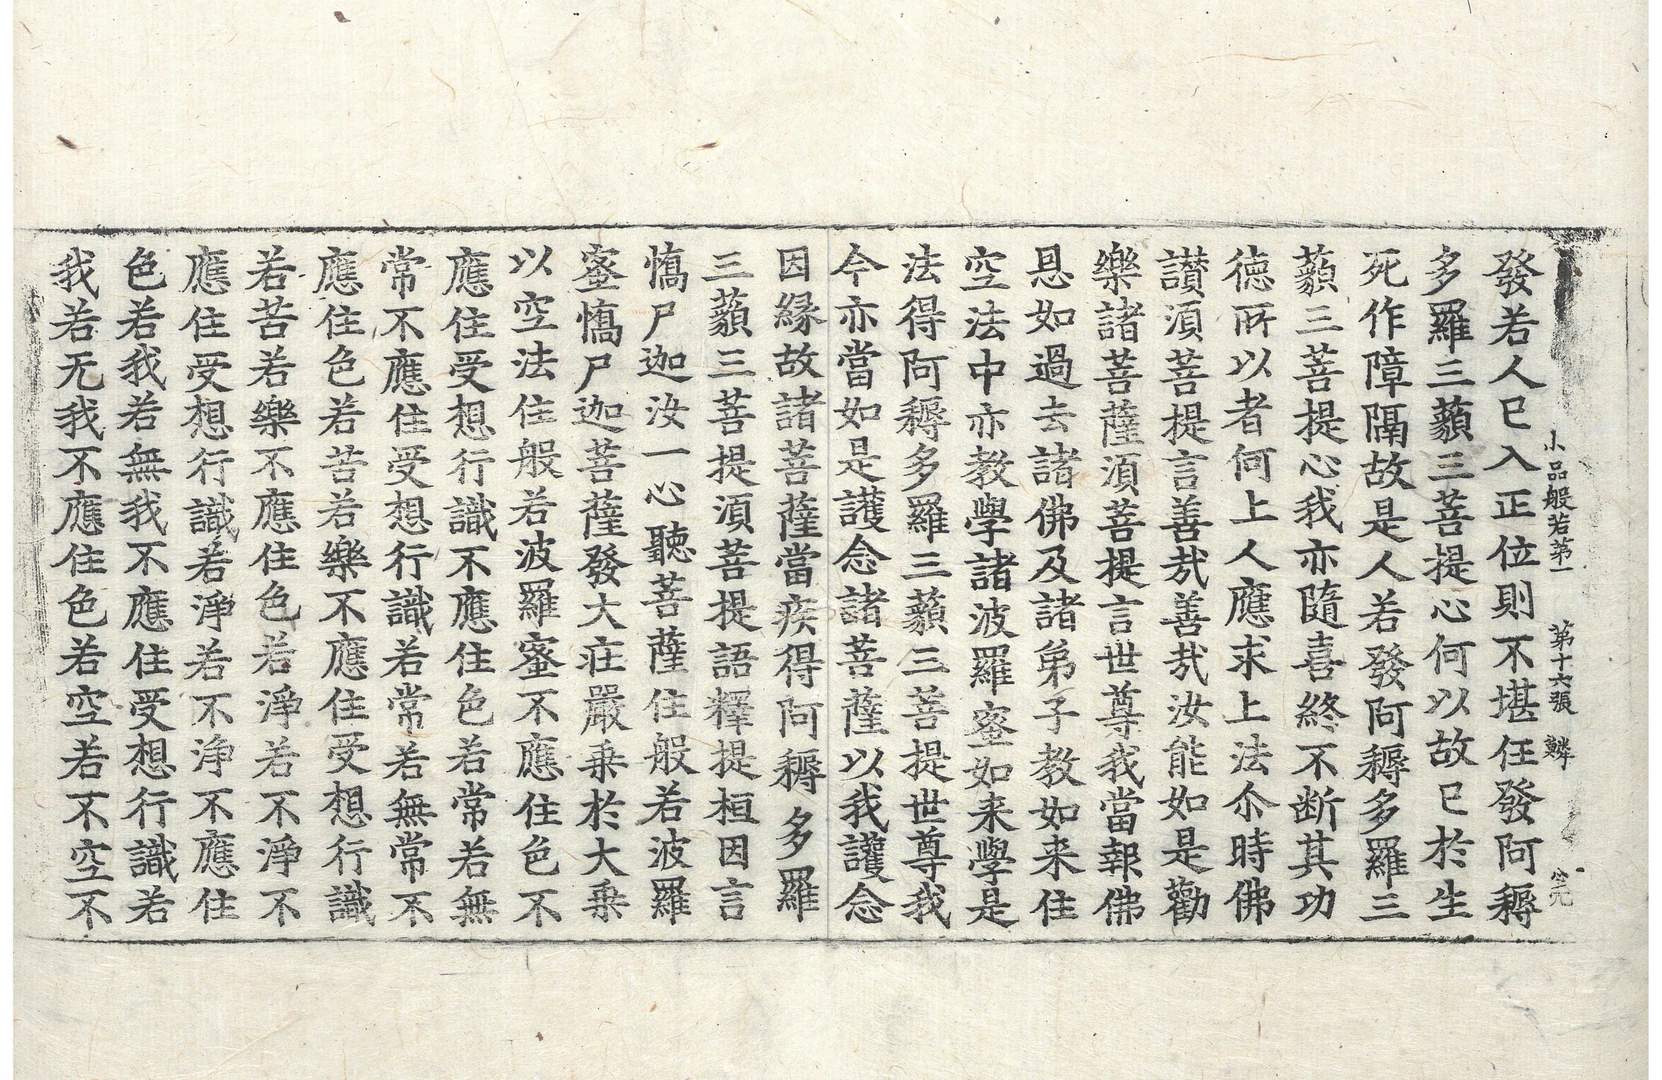 小品般若第一　第十六張　鱗
發若人已入正位則不堪任發阿耨
多羅三藐三菩提心何以故已於生
死作障隔故是人若發阿耨多羅三
藐三菩提心我亦隨喜終不断其功
德所以者何上人應求上法尒時佛
讃湏菩提言善㢤善㢤汝能如是勸
樂諸菩薩湏菩提言世尊我當報佛
恩如過去諸佛及諸弟子教如来住
空法中亦教學諸波羅蜜如来學是
法得阿耨多羅三藐三菩提世尊我
今亦當如是護念諸菩薩以我護念
因縁故諸菩薩當疾得阿耨多羅
三藐三菩提湏菩提語釋提桓因言
憍尸迦汝一心聽菩薩住般若波羅
蜜憍尸迦菩薩發大莊嚴乗於大乗
以空法住般若波羅蜜不應住色不
應住受想行識不應住色若常若無
常不應住受想行識若常若無常不
應住色若苦若樂不應住受想行識
若苦若樂不應住色若淨若不淨不
應住受想行識若淨若不浄不應住
色若我若無我不應住受想行識若
我若无我不應住色若空若不空不